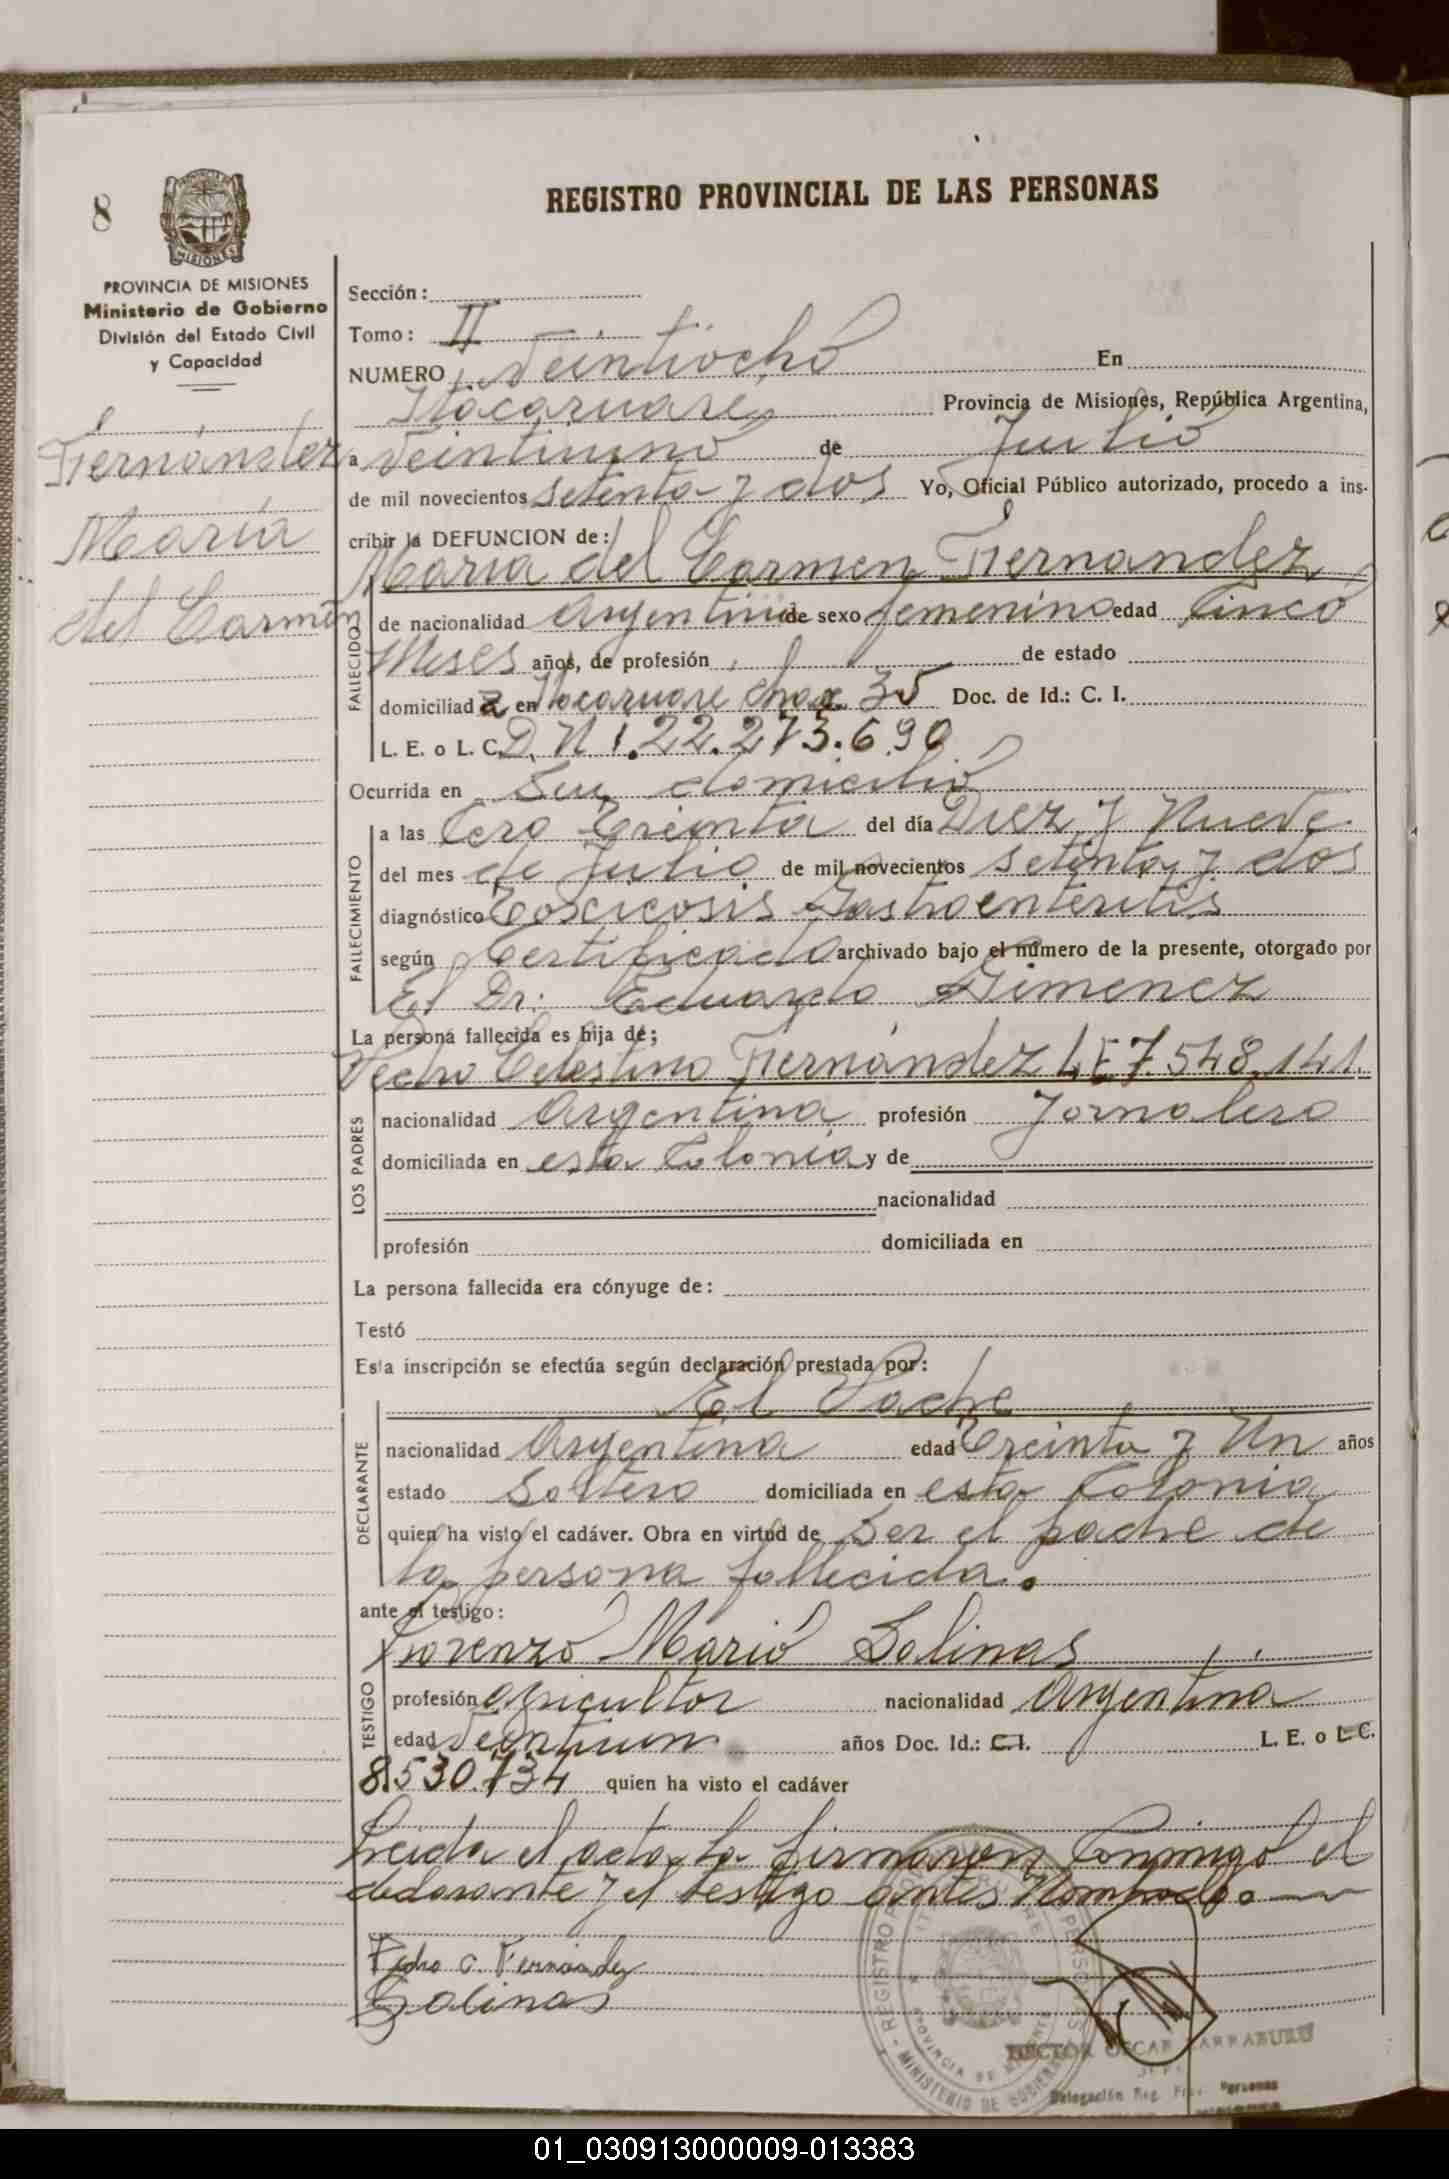 8
PROVINCIA DE MISIONES
Ministerio de Gobierno
División del Estado Civil
y Capacidad
Fernández
María
del Carmen
REGISTRO PROVINCIAL DE LAS PERSONAS
Sección:
Tomo: II
NUMERO Veintiocho En
Itacaruaré, Provincia de Misiones, República Argentina,
a Veintiuno de Julio
de mil novecientos setenta y dos Yo, Oficial Público autorizado, procedo a ins-
cribir la DEFUNCION de:
María del Carmen Fernandez
FALLECIDO
de nacionalidad Argentina de sexo femenino edad Cinco
Meses años, de profesión de estado
domiciliada en Itacaruaré Chac. 35 Doc. de Id.: C. I.
L. E. o L. C. D. N I. 22.273.690
Ocurrida en Su domicilio
FALLECIMIENTO
a las Cero Treinta del día Diez y Nueve
del mes de Julio de mil novecientos setenta y dos
diagnóstico Toxicosis Gastroenteritis
según Certificado archivado bajo el número de la presente, otorgado por
El Dr: Eduardo Gimenez
La persona fallecida es hija de;
Pedro Celestino Fernández L.E 7.548.141.
LOS PADRES
nacionalidad Argentina profesión Jornalero
domiciliada en esta Colonia y de
nacionalidad
profesión domiciliada en
La persona fallecida era cónyuge de:
Testó
Esta inscripción se efectúa según declaración prestada por:
El Padre
DECLARANTE
nacionalidad Argentina edad Treinta y Un años
estado Soltero domiciliada en esta Colonia
quien ha visto el cadáver. Obra en virtud de ser el padre de
la persona fallecida.
ante el testigo:
Lorenzo Mario Salinas
TESTIGO
profesión agricultor nacionalidad Argentina
edad Veintiun años Doc. Id.: C.I. L. E. o L C.
8.530.734 quien ha visto el cadáver
Leida el acta la firmaron Conmigo el
declarante y el testigo antes Nombrado.
Pedro C. Fernández
Salinas
HECTOR OSCAR LARRABURU
Delegación Reg. Personas
01_030913000009-013383